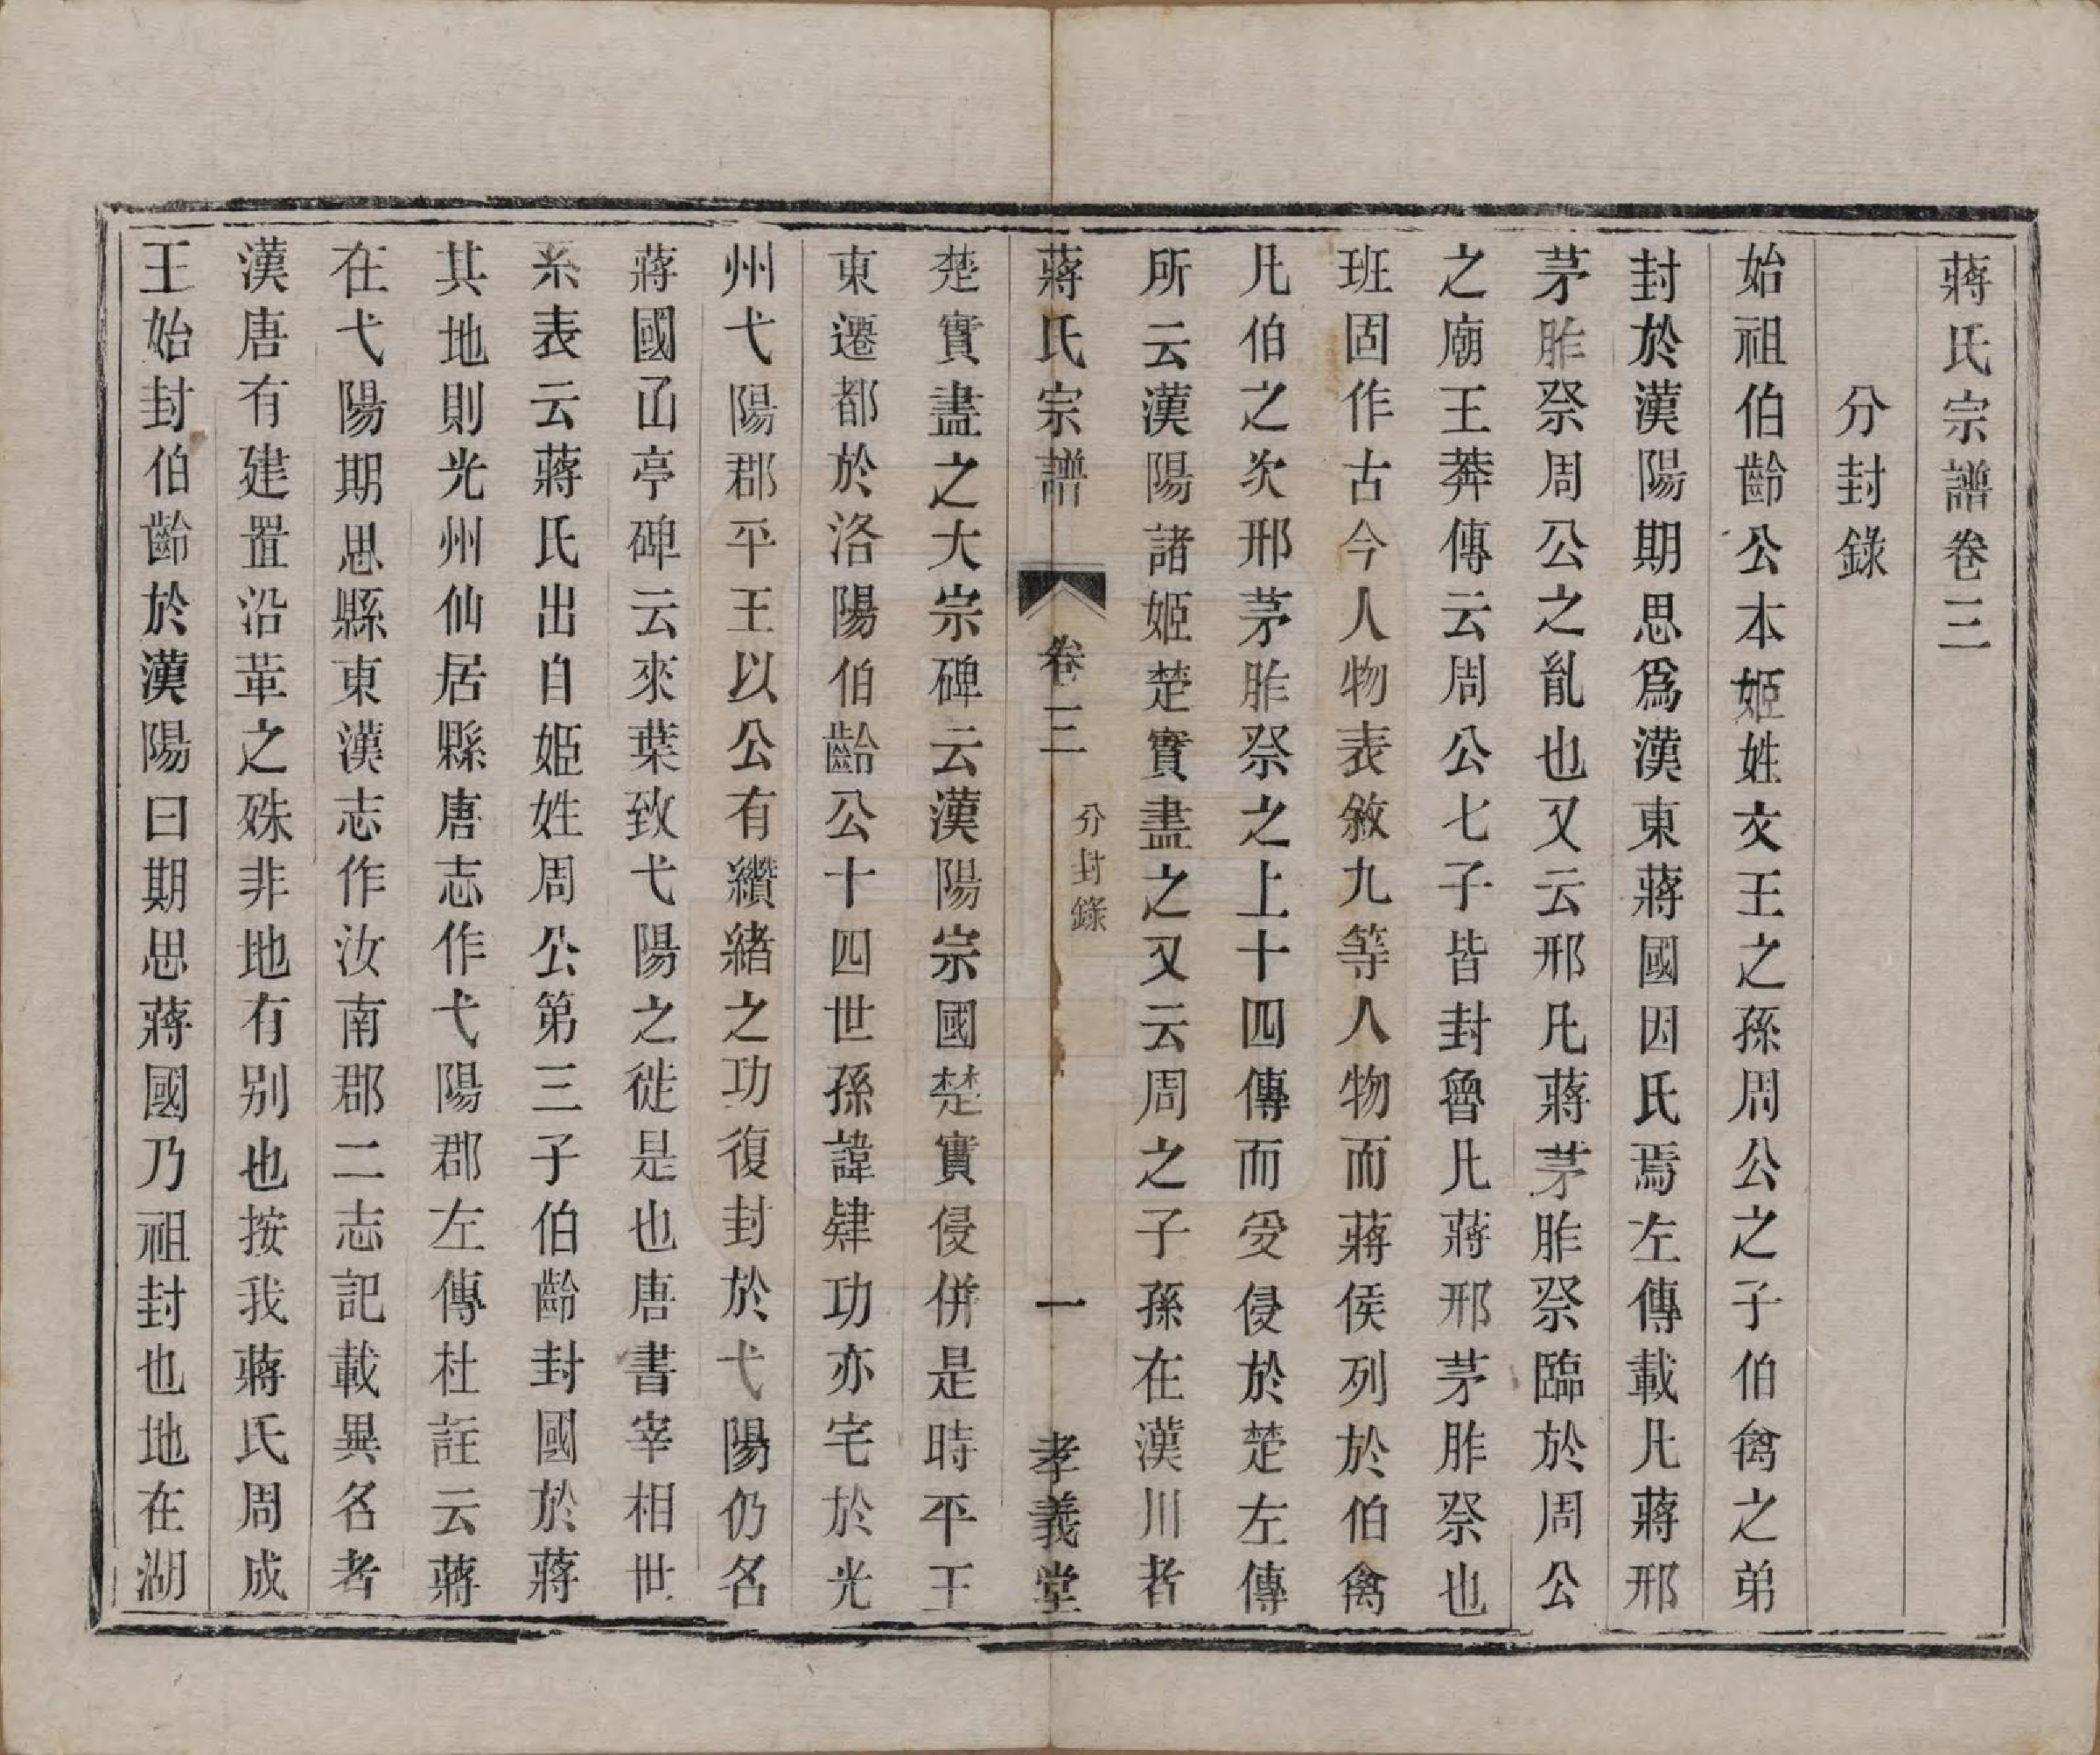 蔣氏宗譜卷三
分封錄
始祖伯齡公本姬姓文王之孫周公之子伯禽之弟
封於漢陽期思爲漢東蔣國因氏焉左傳載凡蔣邢
茅胙祭周公之胤也又云邢凡蔣茅胙祭臨於周公
之廟王莽傳云周公七子皆封魯凡蔣邢茅胙祭也
班固作古今人物表敘九等人物而蔣侯列於伯禽
凡伯之次邢茅胙祭之上十四傳而受侵於楚左傳
所云漢陽諸姬楚實盡之又云周之子孫在漢川者
蔣氏宗譜 卷三 分封錄 一 孝義堂
楚實盡之大宗碑云漢陽宗國楚實侵併是時平王
東遷都於洛陽伯齡公十四世孫諱肄功亦宅於光
州弋陽郡平王以公有纘緒之功復封於弋陽仍名
蔣國凾亭碑云來葉致弋陽之徙是也唐書宰相世
系表云蔣氏出自姬姓周公第三子伯齡封國於蔣
其地則光州仙居縣唐志作弋陽郡左傳杜註云蔣
在弋陽期思縣東漢志作汝南郡二志記載異名者
漢唐有建置沿革之殊非地有别也按我蔣氏周成
王始封伯齡於漢陽曰期思蔣國乃祖封也地在湖